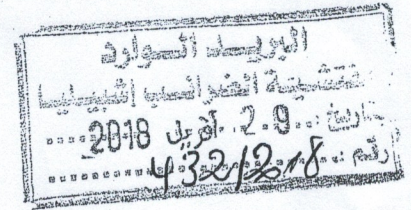 البريد الوارد
مفتشية الضرائب إشبيليا
تاريخ: 2.0. أفريل 2018
رقم: 432/2018